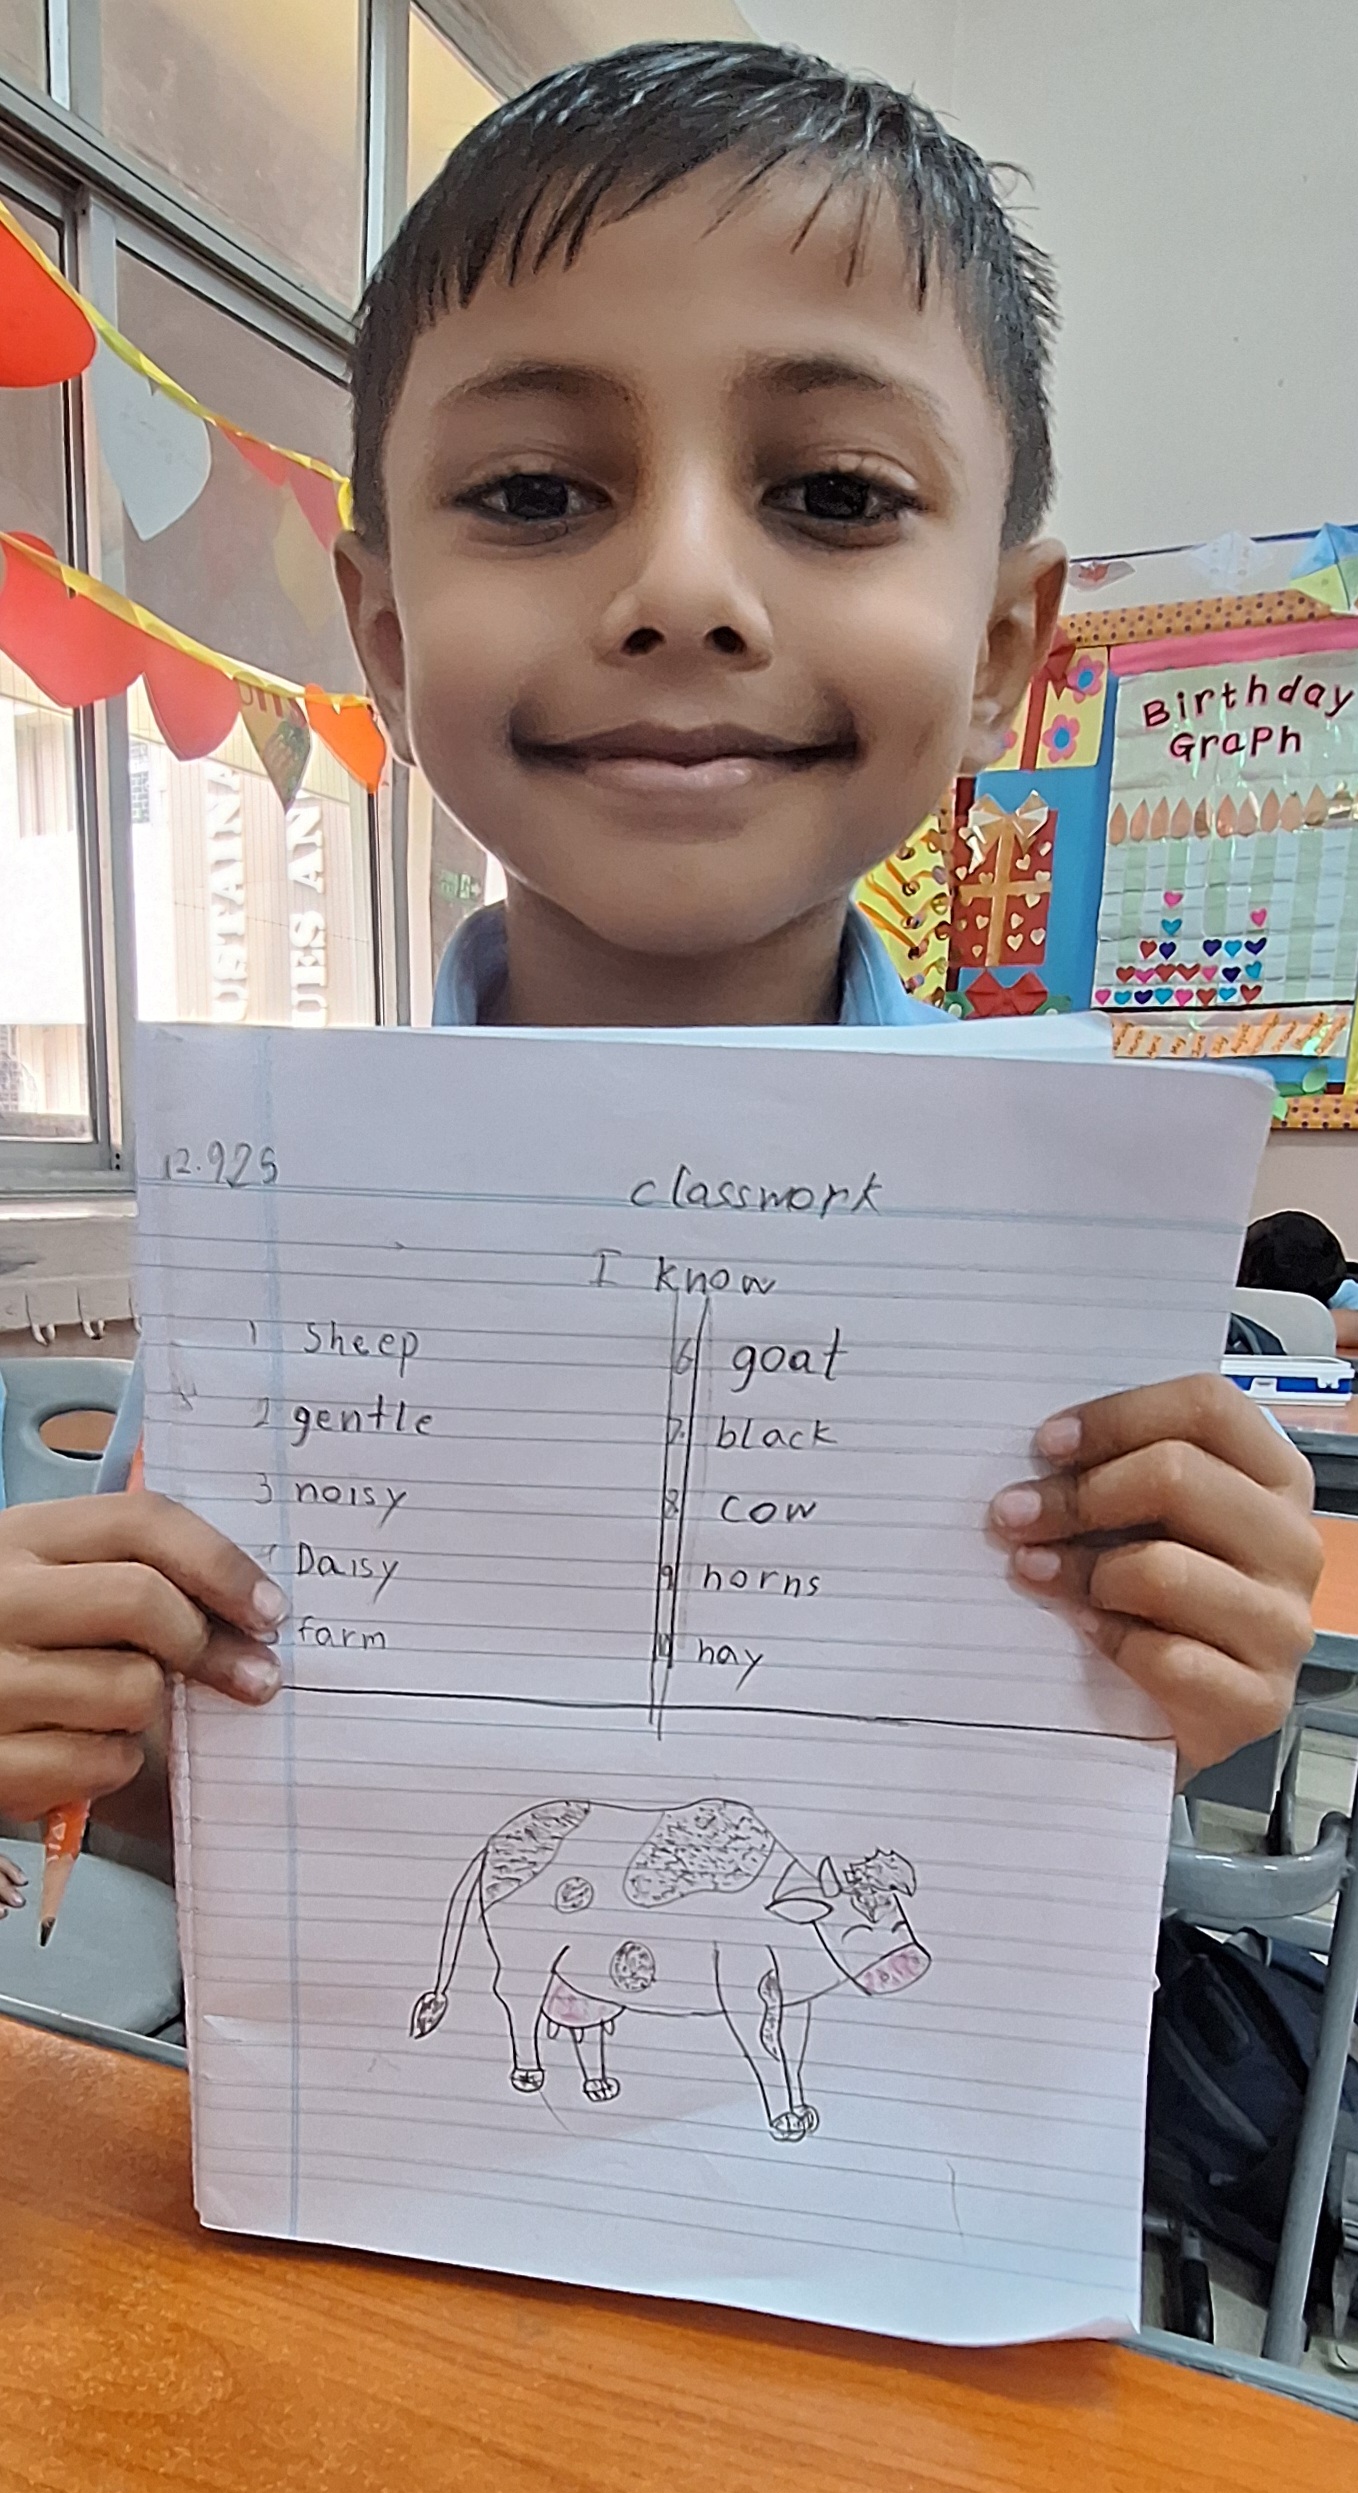 Birthday
Graph
USTAINA
UES AN
12.925
classwork
I know
1 Sheep
2 gentle
3 noisy
Daisy
farm
6 goat
7. black
8 cow
9 horns
10 hay